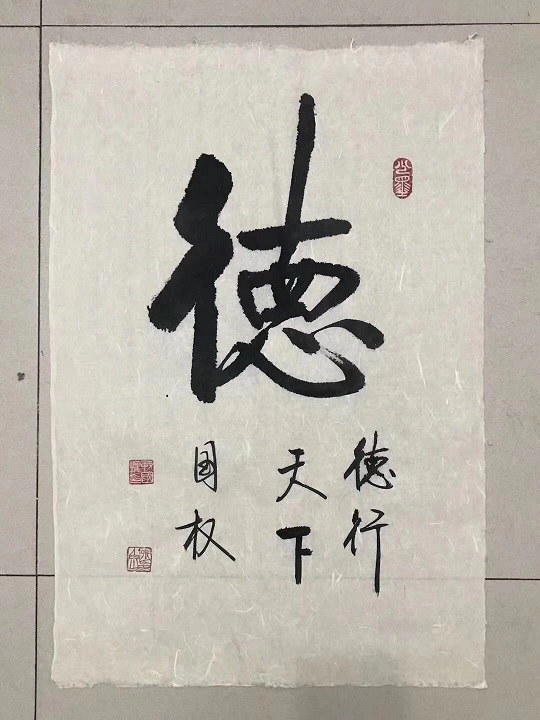 德
德行
天下
国权